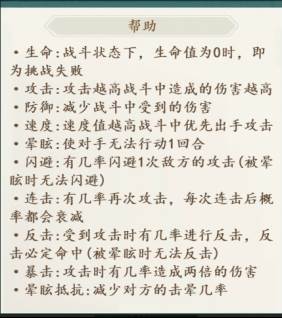 帮助
• 生命:战斗状态下，生命值为0时，即
为挑战失败
• 攻击:攻击越高战斗中造成的伤害越高
• 防御:减少战斗中受到的伤害
• 速度:速度值越高战斗中优先出手攻击
• 晕眩:使对手无法行动1回合
• 闪避:有几率闪避1次敌方的攻击(被晕
眩时无法闪避)
• 连击:有几率再次攻击，每次连击后概
率都会衰减
• 反击:受到攻击时有几率进行反击，反
击必定命中(被晕眩时无法反击)
• 暴击:攻击时有几率造成两倍的伤害
• 晕眩抵抗:减少对方的击晕几率